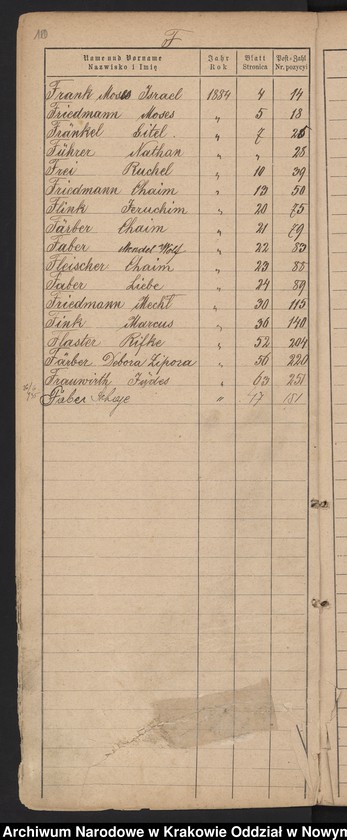 F
Name und Vorname Jahr Blatt Post-Zahl
Nazwisko i Imię Rok Stronica Nr. pozycyi
Frank Moses Israel 1884 4 14
Friedmann Moses " 5 18
Fränkel Eitel " 7 26
Führer Nathan " " 28
Frei Ruchel " 10 39
Friedmann Chaim " 13 50
Flink Jeruchim " 20 75
Färber Chaim " 21 79
Faber Mendel Wolf " 22 83
Fleischer Chaim " 23 88
Faber Liebe " 24 89
Friedmann Mechl " 30 115
Fink Marcus " 36 140
Flaster Rifke " 52 204
Färber Debora Zipora " 56 220
Frauwirth " 63 251
Faber " 47 181
Archiwum Narodowe w Krakowie Oddział w Nowym